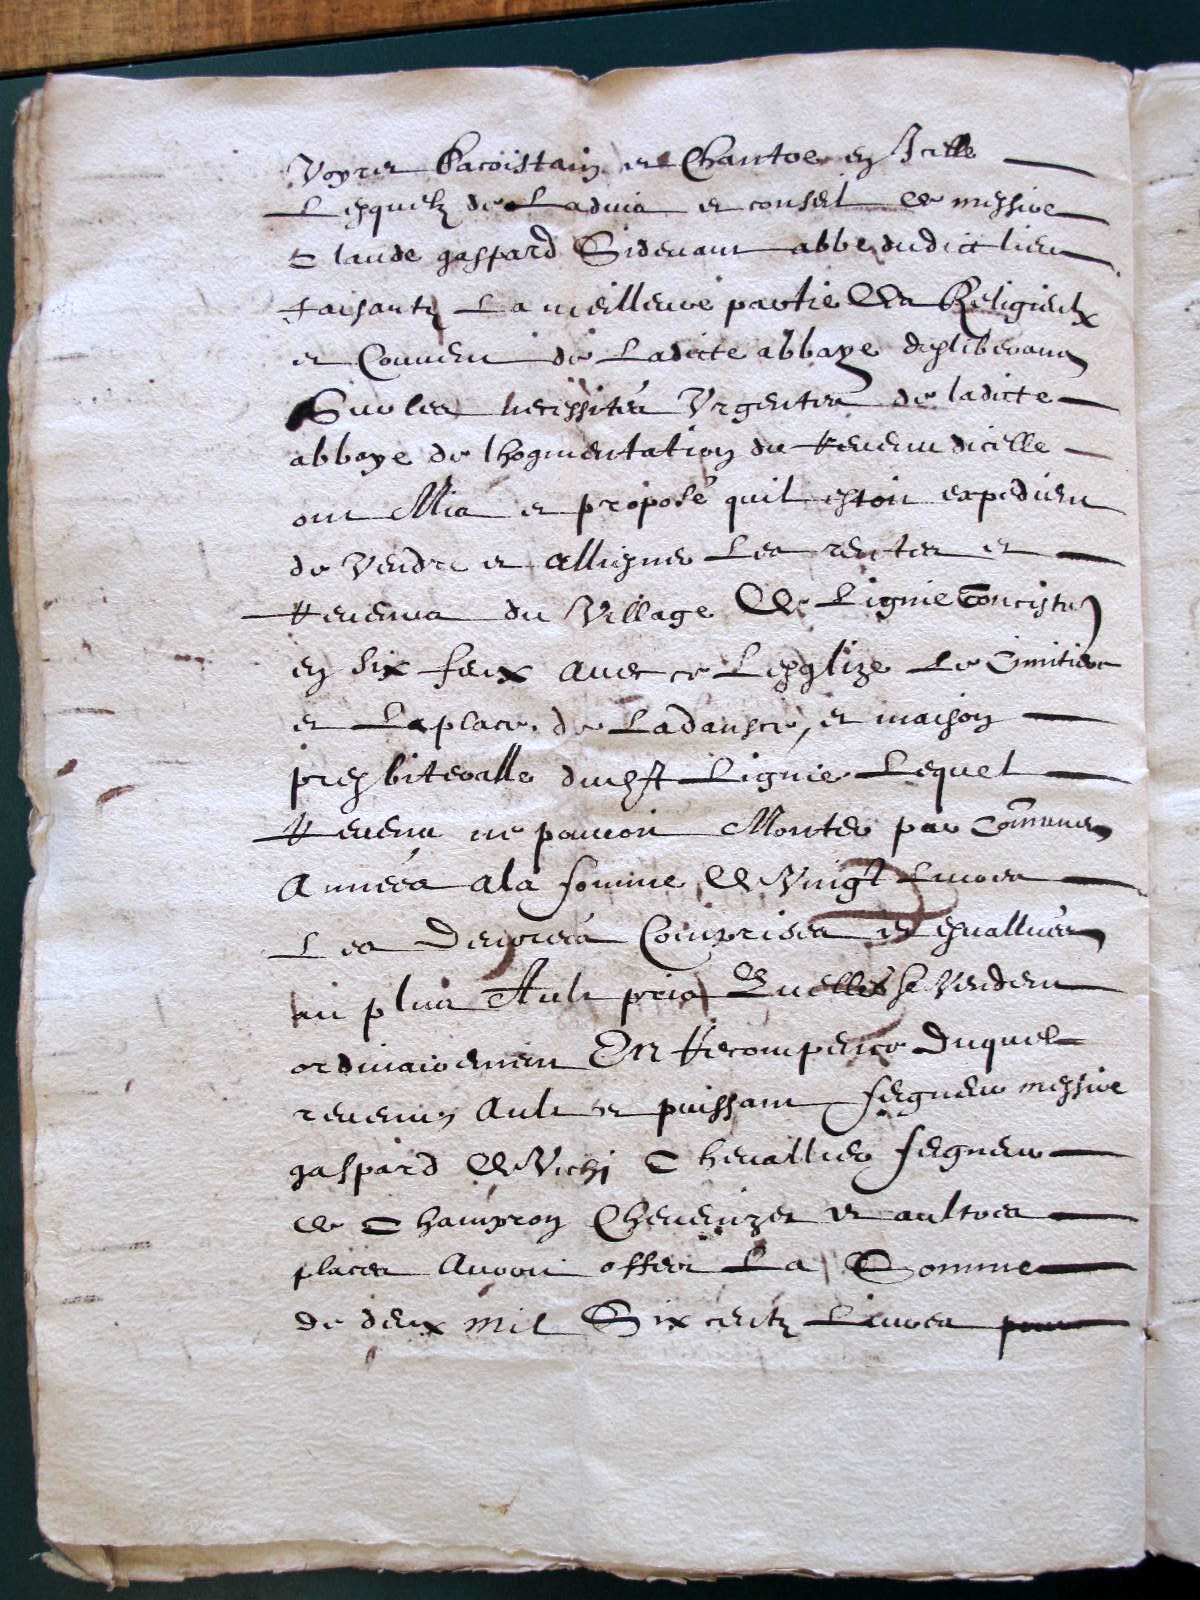 Voyrer Sacristain et Chantre en Icelle
Lesquelz de Ladvis et conseil de messire
Claude gaspard Sidevant abbé dudict lieu
faisantz La meilleure partie des Religieulx
et Couvent de Ladicte abbaye desliberans
Sur les necessités Urgentes de ladicte
abbaye de lhogmentation du Revenu dicelle
ont Mis et proposé quil estoit expedient
de Vendre et alliesner Les rentes et
Revenus du Village de Lignie Concistant
en six feux avec ce Lesglize Le Cimitiere
et La place de La danse, et maison
presbiteralle dudit Lignie Lequel
Revenu ne pouvoit Monter par Commune
Années a la somme de Vingt Livres
Les Denrées Comprises et esvalluées
au plus Ault prix Quelles se Vendent
ordinairement En Recompence Duquel
revenus, Ault et puissant seigneur messire
gaspard de Vichi Chevallier seigneur
de Champron Chevenizet et aultres
places Avoit offert La Somme
de deux mil Six centz Livres